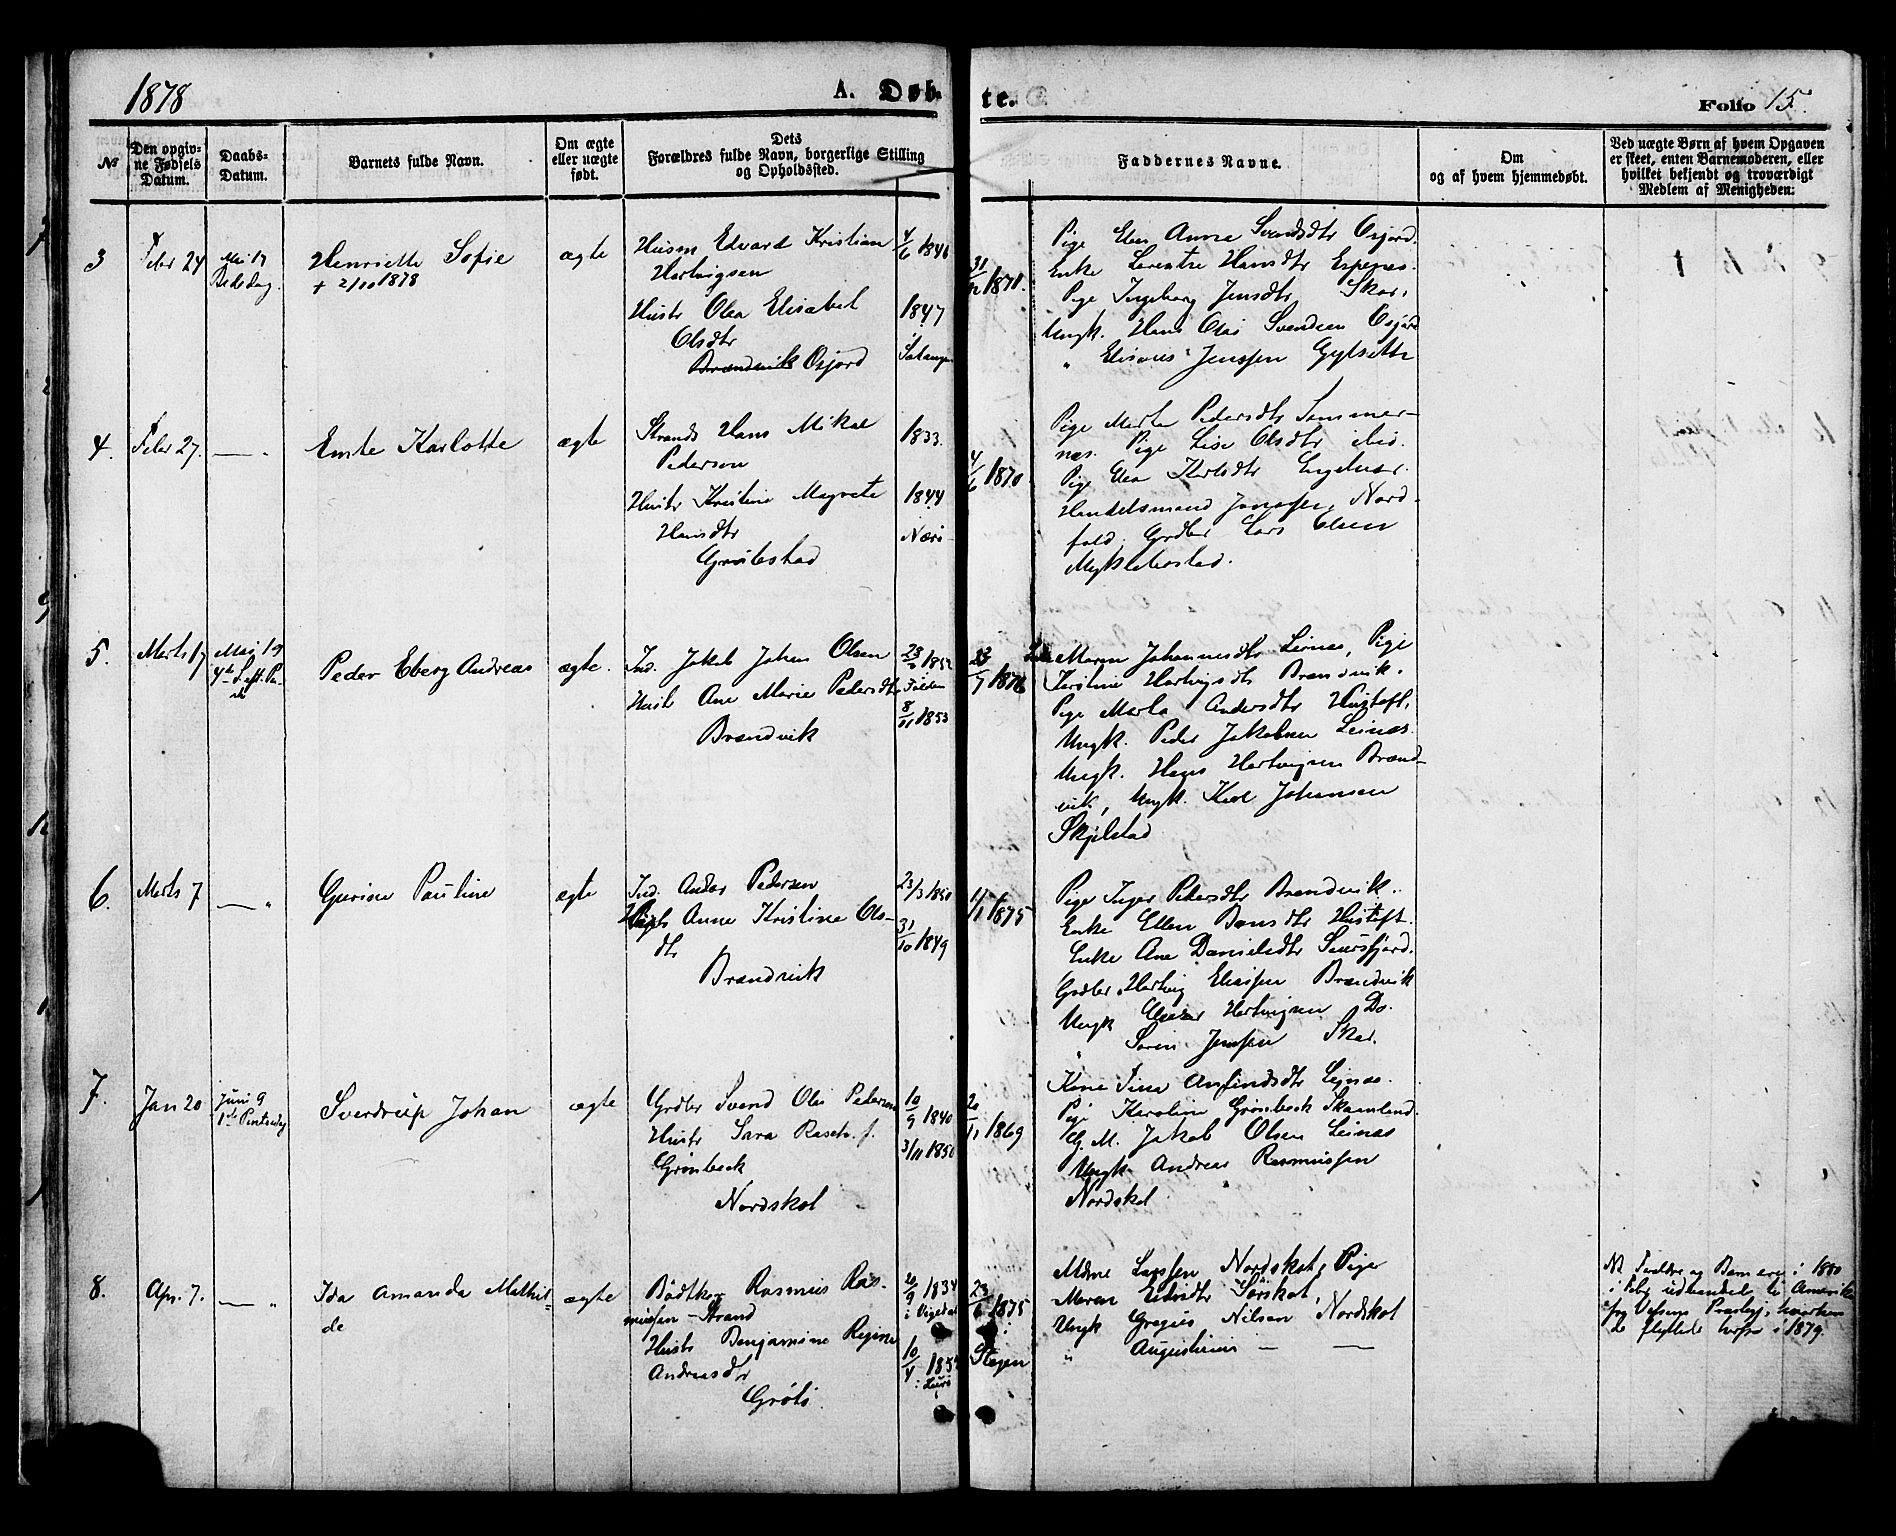 1878
A. Døb-
te.
Folio 15.
№
Den opgiv-
ne Fødsels
Datum.
Daabs-
Datum.
Barnets fulde Navn.
Om ægte
eller uægte
født.
Dets
Forældres fulde Navn, borgerlige Stilling
og Opholdssted.
Faddernes Navne.
Om
og af hvem hjemmedøbt.
Ved uægte Børn af hvem Opgaven
er skeet, enten Barnemoderen, eller
hvilket bekjendt og troværdigt
Medlem af Menigheden.
3
Febr 24
Mai 17
Bededag.
Henriette Sofie
+ 2/10 1878
ægte
Husm Edvard Kristian
Hartvigsen
Hustr Olea Elisabet
Olsdtr
Brændvik Osjord
4/6 1846
1847
Salangen
31/12 1871.
Pige Elen Anna Svendsdtr Osjord.
Enke Lorentse Hansdtr Espenes.
Pige Ingeborg Jensdtr Skar,
Ungk. Hans Olai Svendsen Osjord
" Elisæus Jenssen Gylseth
4.
Febr 27.
— "
Emte Karlotte
ægte
Strands Hans Mikal
Pederson
Hustr Kristine Magrete
Hansdtr
Grøtestad
1833.
1844
Nærö
4/6 1870
Pige Marta Pedersdtr Sommer-
næs. Pige Lise Olsdtr ibid.
Pige Elea Karlsdtr Engelvær.
Handelsmand Jonassen, Nord-
fold, Grdbr Lars Olsen
Myklebostad.
5.
Marts 17
Mai 19
4de S. eft. Pa-
ske
Peder Eberg Andreas
ægte.
Ind. Jakob Johan Olsen
Hust Ane Marie Pedersdtr
Brændvik
Folden
8/11 1853
Maren Johannesdtr Leinæs, Pige
Kirstine Hartvigsdtr Brændvik.
Pige Marta Andersdtr Hustoft,
Ungk. Peder Jakobsen Leinæs.
Ungk. Hans Hartvigsen Brænd-
vik, Ungk. Karl Johansen
Skjelstad
6.
Marts 7
— "
Gurine Pauline
ægte
Ind. Andor Pedersen
Hustr Anne Kristine Ols-
dtr
Brændvik
23/3 1850
31/10 1849
11/1 1875
Pige Inger Pedersdtr Brændvik.
Enke Ellen Bonsdtr Hustoft.
Enke Ane Danielsdtr Saursfjord.
Grdbr. Hartvig Eliassen Brændvik
Ungk Elias Hartvigsen Do.
" Søren Jenssen Skar.
7.
Jan 20
Juni 9
1ste Pintsedag
Sverdrup Johan
ægte
Grdbr Svend Olai Pederson
Hustr Sara Rasch. f.
Grønbeck
Nordskot
10/9 1840
3/11 1850
20/11 1869
Kone Tina Anfindsdtr Leinæs.
Pige Karoline Grønbeck Skaanland
G. M. Jakob Olsen Leinæs
Ungk. Andreas Rasmussen
Nordskot
8.
Apr. 7.
— "
Ida Amanda Mathil-
de
ægte
Bödtker Rasmus Ras-
mussen Strand
Hustr Benjamine Regine
Andreasdtr
Grøtö
20/9 1834
10/4
i Lurö
23/6 1875
Steigen
Mdme Larsen Nordskot, Pige
Maren Eidisdtr Sörskot,
Ungk Gregus Nilsen, Nordskot
" Augustinus — —
NB Forældre og Barn ere i 1880
i Febr udvandret til Amerika
fra Vefsens Præstegj, hvorhen
de flyttede herfra i 1879.